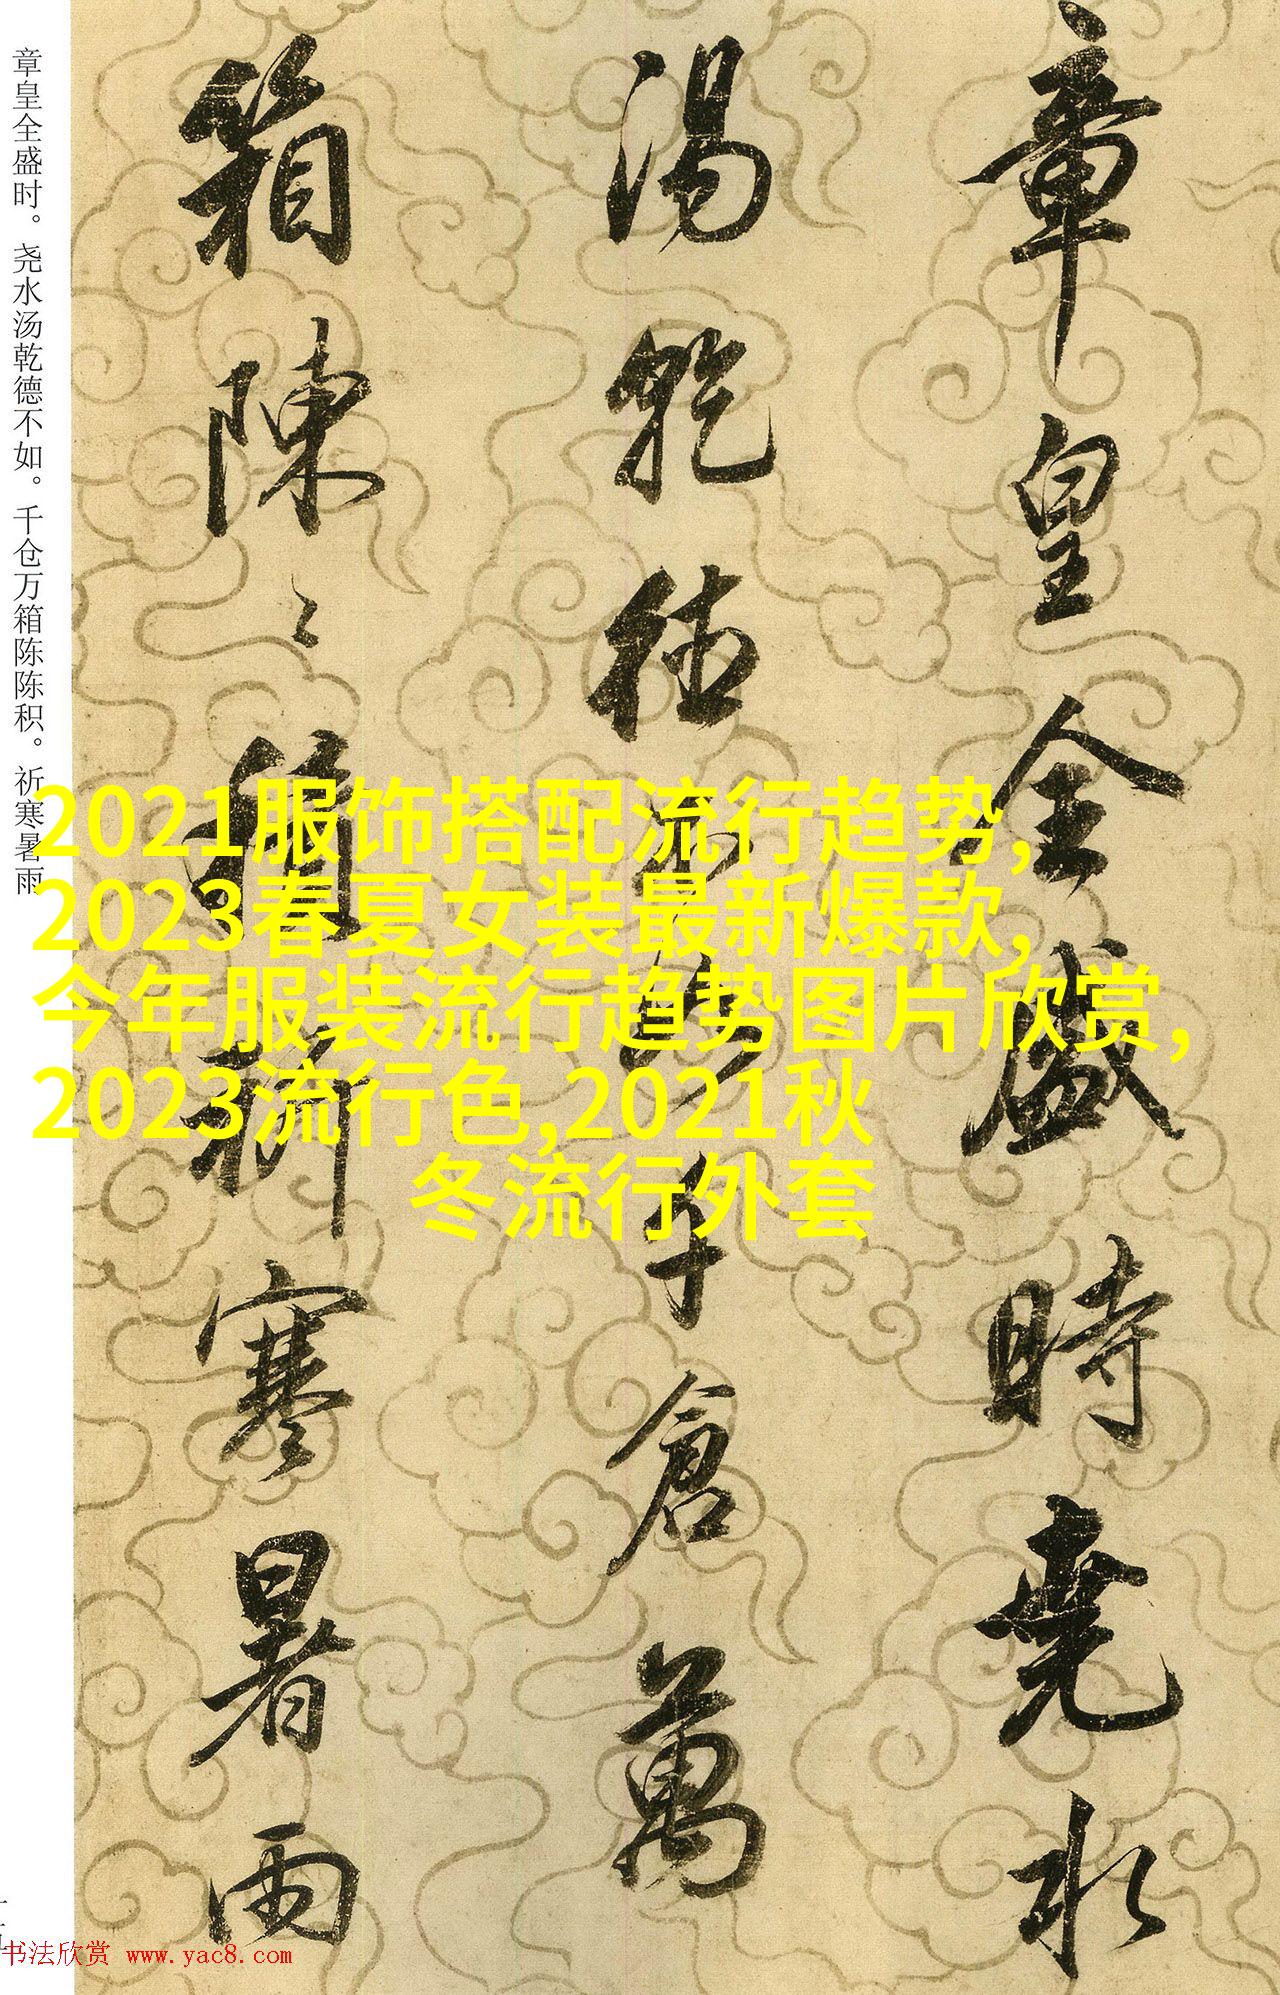 章皇全盛时。尧水汤乾德不如。千仓万箱陈陈积。祈寒暑雨
章皇全盛時堯水
湯乾德不如千倉萬
箱陳〻積祈寒暑雨
2021服饰搭配流行趋势,
2023春夏女装最新爆款,
今年服装流行趋势图片欣赏,
2023流行色,2021秋
冬流行外套
书法欣赏 www.yac8.com